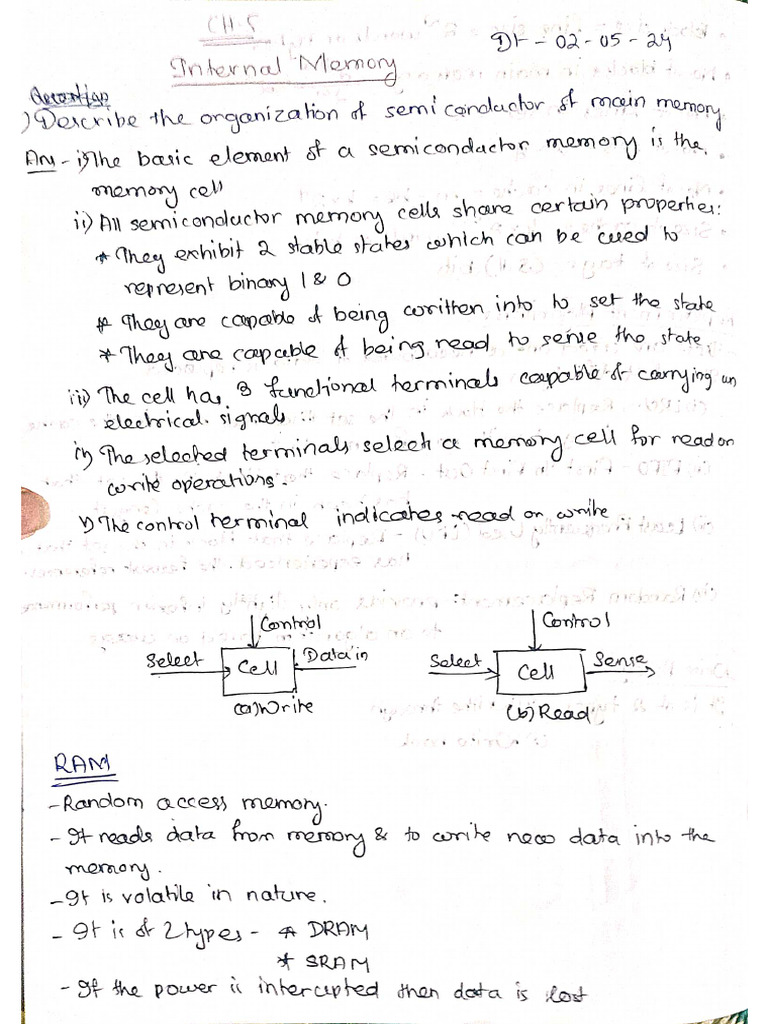 CH-5
Dt - 02-05-24
Internal Memory
Question
1) Describe the organization of semiconductor of main memory
Ans - i) The basic element of a semiconductor memory is the
memory cell
ii) All semiconductor memory cells share certain properties:
* They exhibit 2 stable states which can be used to
represent binary 1 & 0
* They are capable of being written into to set the state
* They are capable of being read to sense the state
iii) The cell has 3 functional terminals capable of carrying an
electrical signals
iv) The selected terminals select a memory cell for read or
write operations.
v) The control terminal indicates read or write
Control
Select
Cell
Data in
(a) Write
Control
Select
Cell
Sense
(b) Read
RAM
- Random access memory.
- It reads data from memory & to write new data into the
memory.
- It is volatile in nature.
- It is of 2 types - * DRAM
* SRAM
- If the power is interupted then data is lost